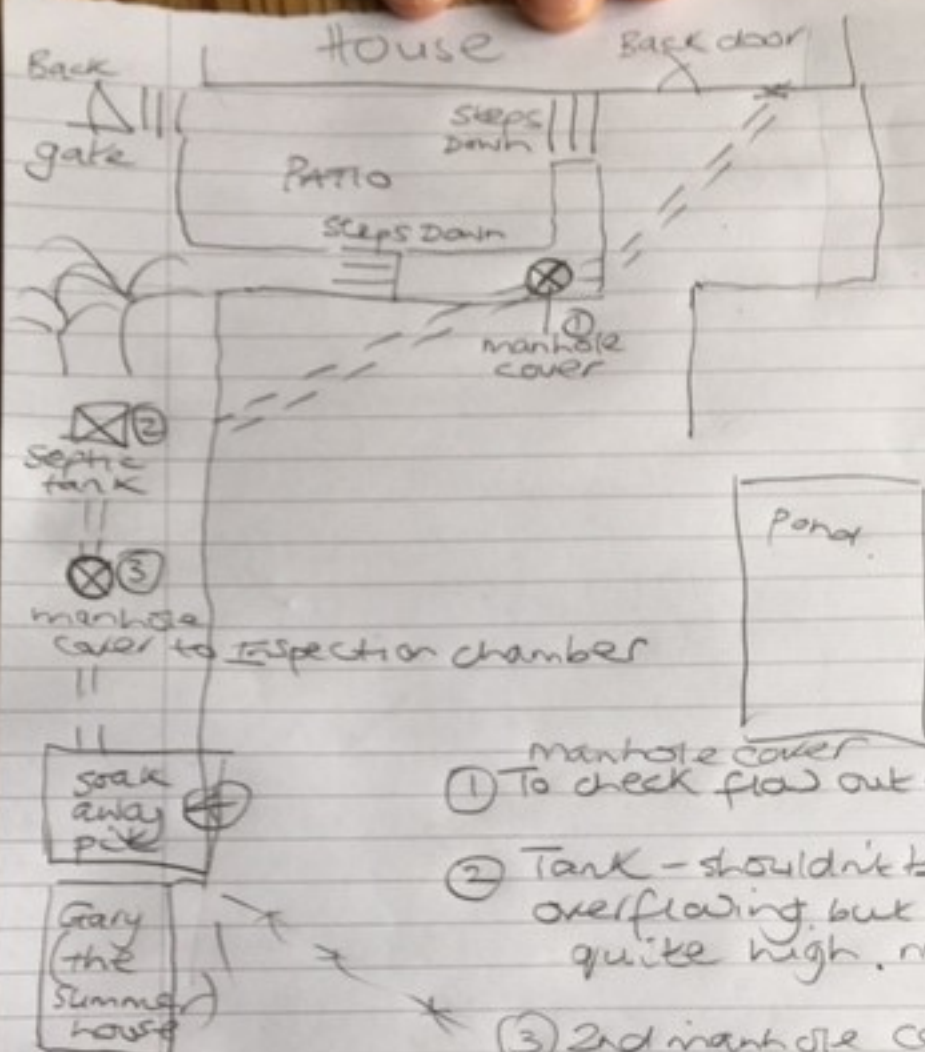 House
Back door
Back
gate
Steps
Down
PATIO
Steps Down
①
manhole
cover
②
Septic
tank
③
manhole
cover to Inspection chamber
Pond
Soak
away
pit
manhole cover
① To check flow out
② Tank - shouldn't b
overflowing but
quite high. n
Gary
(the
summer)
house
③ 2nd manhole co